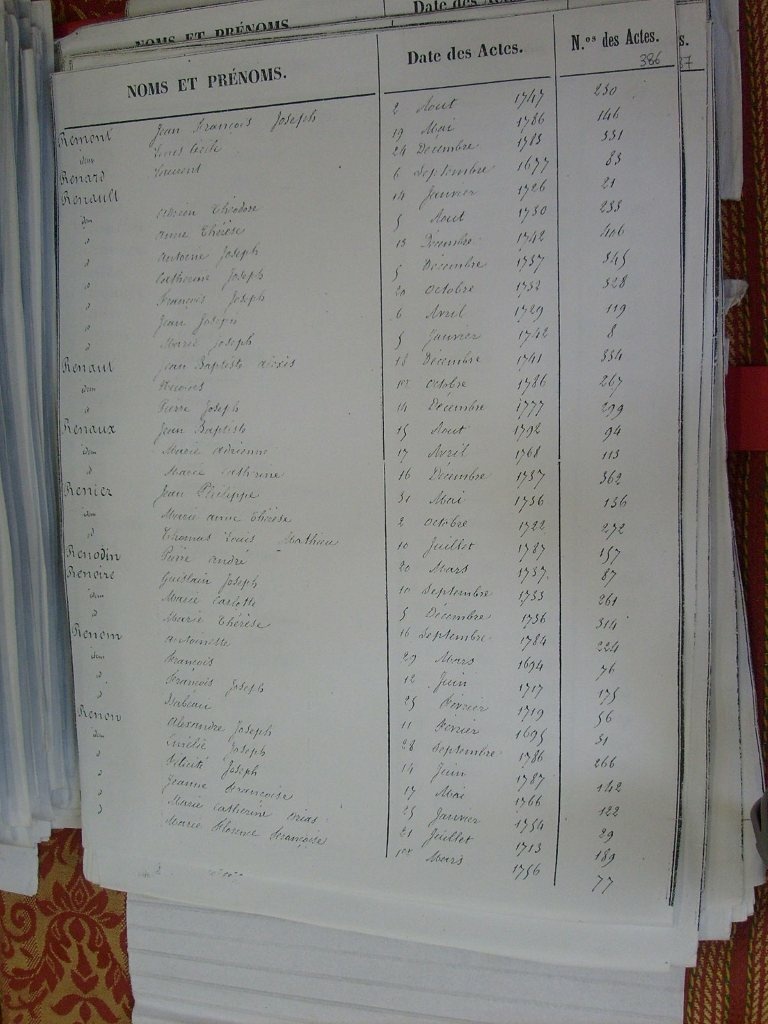 NOMS ET PRÉNOMS. Date des Actes.
NOMS ET PRÉNOMS. Date des Actes. N.os des Actes. s.
386 37
Remont Jean François Joseph 2 Aout 1747 230
idem Louis Cécile 19 Mai 1786 146
Renard Laurent 24 Décembre 1783 331
Renault 6 Septembre 1677 83
idem Adrien Théodore 14 Janvier 1726 21
d Anne Thérèse 5 Aout 1730 233
d Antoine Joseph 13 Décembre 1742 406
d Catherine Joseph 5 Décembre 1737 345
d François Joseph 20 Octobre 1732 328
d Jean Joseph 6 Avril 1729 119
d Marie Joseph 5 Janvier 1742 8
Renaut Jean Baptiste Alexis 18 Décembre 1741 334
idem 1er octobre 1786 267
d Pierre Joseph 14 Décembre 1777 299
Renaux Jean Baptiste 15 Aout 1792 94
idem Marie Adrienne 17 Avril 1768 113
d Marie Catherine 16 Décembre 1737 362
Renier Jean Philippe 31 Mai 1736 136
idem Marie anne Thérèse 2 octobre 1722 272
d Thomas Louis Mathieu 10 Juillet 1787 157
Renodin Pierre André 20 Mars 1737. 87
Renoire Guislain Joseph 10 Septembre 1733 261
idem Marie Carlotte 5 Décembre 1736 314
d Marie Thérèse 16 Septembre 1784 224
Renom Antoinette 29 Mars 1694 76
idem François 12 Juin 1717 175
d François Joseph 25 Février 1719 56
d Isabeau 11 Février 1695 31
Renon Alexandre Joseph 28 Septembre 1786 266
idem Amélie Joseph 14 Juin 1787 142
d Félicité Joseph 17 Mai 1766 122
d Jeanne Françoise 25 Janvier 1754 29
d Marie Catherine 21 Juillet 1713 189
d Marie Florence Françoise 1er Mars 1756 77